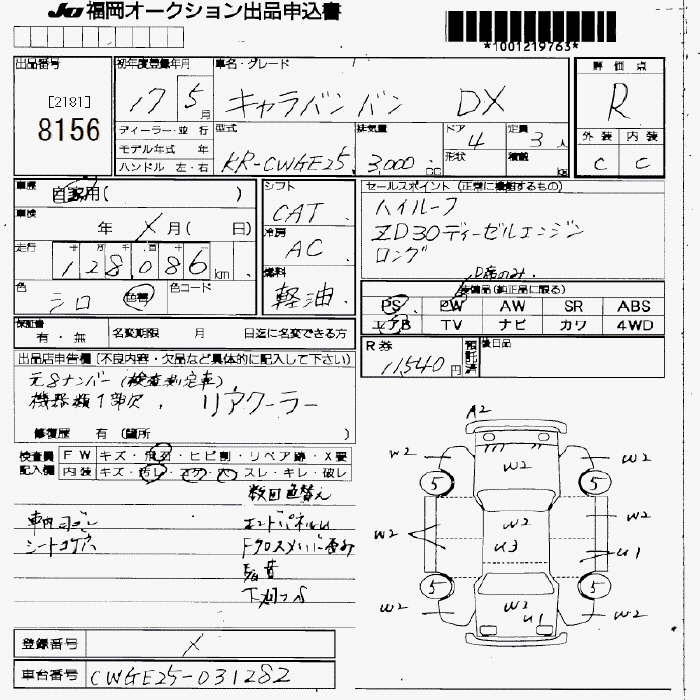 JU 福岡オークション出品申込書
*1001219763*
出品番号 初年度登録年月 車名・グレード 評価点
[2181]
8156
17 5月 キャラバン バン DX R
ディーラー・並行 型式 排気量 ドア 4 定員 3人 外装 内装
モデル年式 年 KR-CWGE25 3,000cc 形状 積載 kg C C
ハンドル 左・右
車歴 自家用( ) シフト CAT セールスポイント (正常に機能するもの)
車検 年 X月( 日) 冷房 AC ハイルーフ
ZD30ディーゼルエンジン
ロング
走行 128,086km 燃料 軽油
D席のみ
色 シロ 色替 色コード 装備品(純正品に限る)
PS PW AW SR ABS
エアB TV ナビ カワ 4WD
保証書 有・無 名変期限 月 日迄に名変できる方
R券 11,540円 預託済 後日品
出品店申告欄(不良内容・欠品など具体的に記入して下さい)
元8ナンバー(検査測定車)
機器類1部欠. リアクーラー
修復歴 有 (箇所 )
検査員記入欄 FW キズ・凹・ヒビ割・リペア跡・X要
内装 キズ・汚レ・コゲ・穴・スレ・キレ・破レ
色替え
エンドパネルU
シートコゲ穴
A2
W2 W2 W2
5 5
W2 W2 W2
U3 U1
5 5
W2 W2 W2
U1
登録番号 X
車台番号 CWGE25-031282